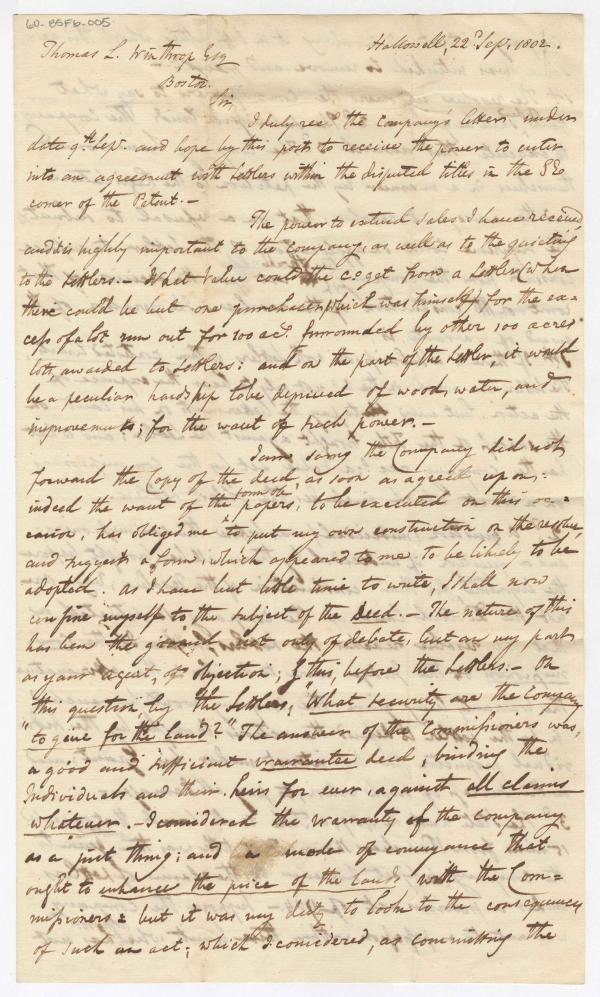 60-BSF6-005
Hallowell, 22d Sep. 1802.
Thomas L. Winthrop Esq
Boston.
Sir,
I duly recd. the Company's letters under
date 9th. Sepr. and hope by this post to receive the power to enter
into an agreement with Settlers within the disputed titles in the SEo
corner of the Patent.-
The power to extend sales I have received
and it is highly important to the company, as well as to the quieting
to the Settlers.- What value could the co: get from a Settler (when
there could be but one purchaser, which was himself) for the ex=
cess of a lot run out for 100 acs. surrounded by other 100 acres
lots, awarded to Settlers: and on the part of the Settler, it would
be a peculiar hardship to be deprived of wood, water, and
improvements; for the want of such power.-
I am sorry the Company did not
forward the Copy of the deed, as soon as agreed upon:
indeed the want of the form of papers, to be executed on this oc=
casion, has obliged me to put my own construction on the resolve,
and suggest a form, which appeared to me to be likely to be
adopted. as I have but little time to write, I shall now
confine myself to the subject of the Deed.- The nature of this
has been the ground not only of debate, but on my part
as your agent, of objection; & this, before the Settlers.- On
this question by the Settlers, "What security are the company
"to give for the land?" The answer of the Commissioners was,
a good and sufficient warrantee deed, binding the
Individuals and their heirs for ever, against all claims
whatever.- I considered the warranty of the company
as a just thing; and a mode of conveyance that
ought to enhance the price of the lands, with the Com=
missioners: but it was my duty to look to the consequences
of such an act; which I considered, as committing the